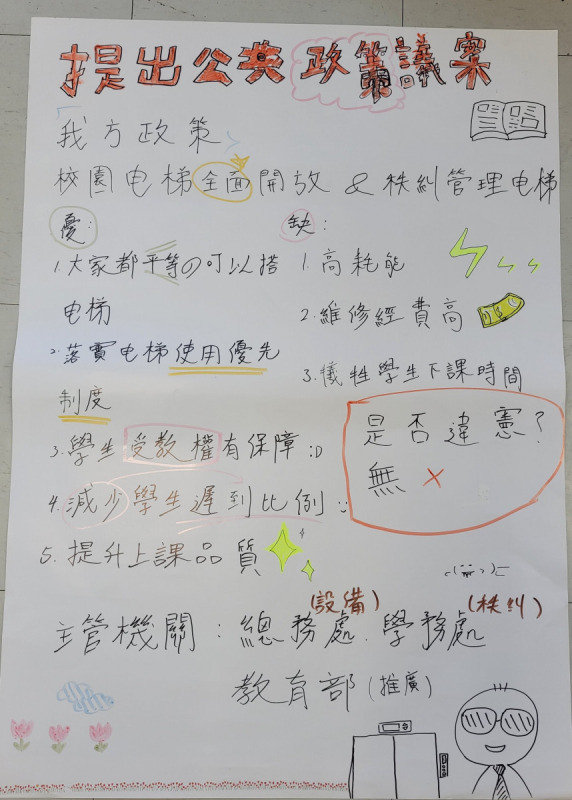 提出公共政策議案
我方政策
校園电梯全面開放 & 秩糾管理电梯
優:
1.大家都平等の可以搭
电梯
2.落實电梯使用優先
制度
3.學生受教權有保障:D
4.減少學生遲到比例:
5.提升上課品質
缺:
1.高耗能
2.維修經費高
3.犧牲學生下課時間
是否違憲?
無 ×
主管機關:總務處(設備).學務處(秩糾)
教育部(推廣)